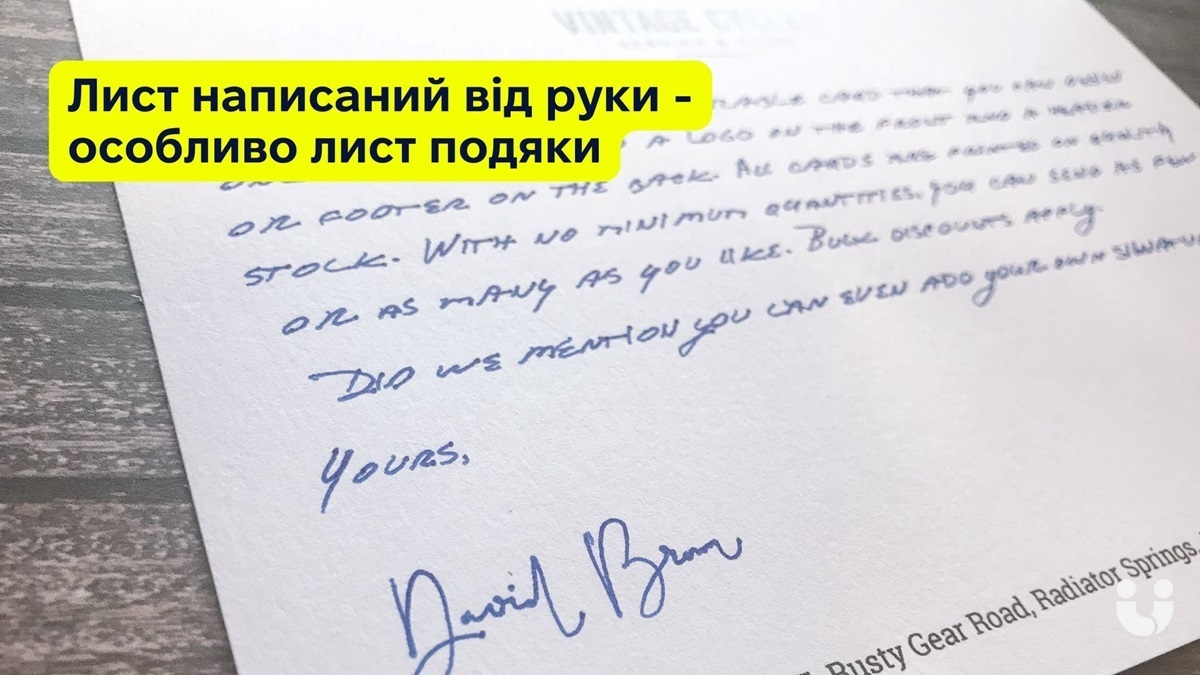 VINTAGE CYCLES
Лист написаний від руки -
особливо лист подяки
CARD THAT YOU CAN EVEN
A LOGO ON THE FRONT AND A HEADER
OR FOOTER ON THE BACK. ALL CARDS ARE PRINTED ON QUALITY
STOCK. WITH NO MINIMUM QUANTITIES. YOU CAN SEND AS FEW
OR AS MANY AS YOU LIKE. BULK DISCOUNTS APPLY.
DID WE MENTION YOU CAN EVEN ADD YOUR OWN
YOURS,
David Brown
Rusty Gear Road, Radiator Springs,